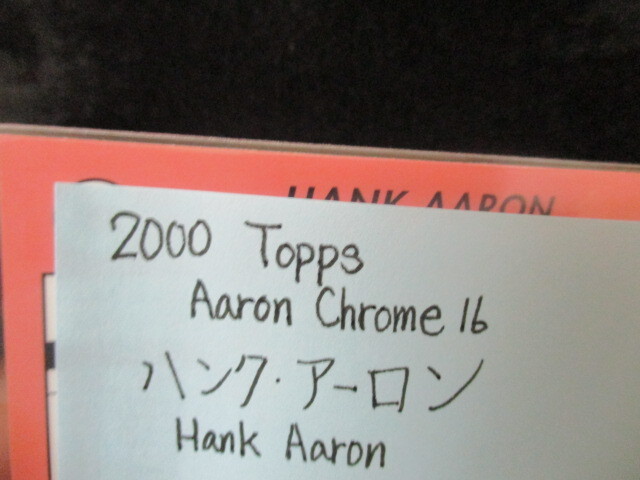 HANK AARON
2000 Topps
Aaron Chrome 16
ハンク・アーロン
Hank Aaron